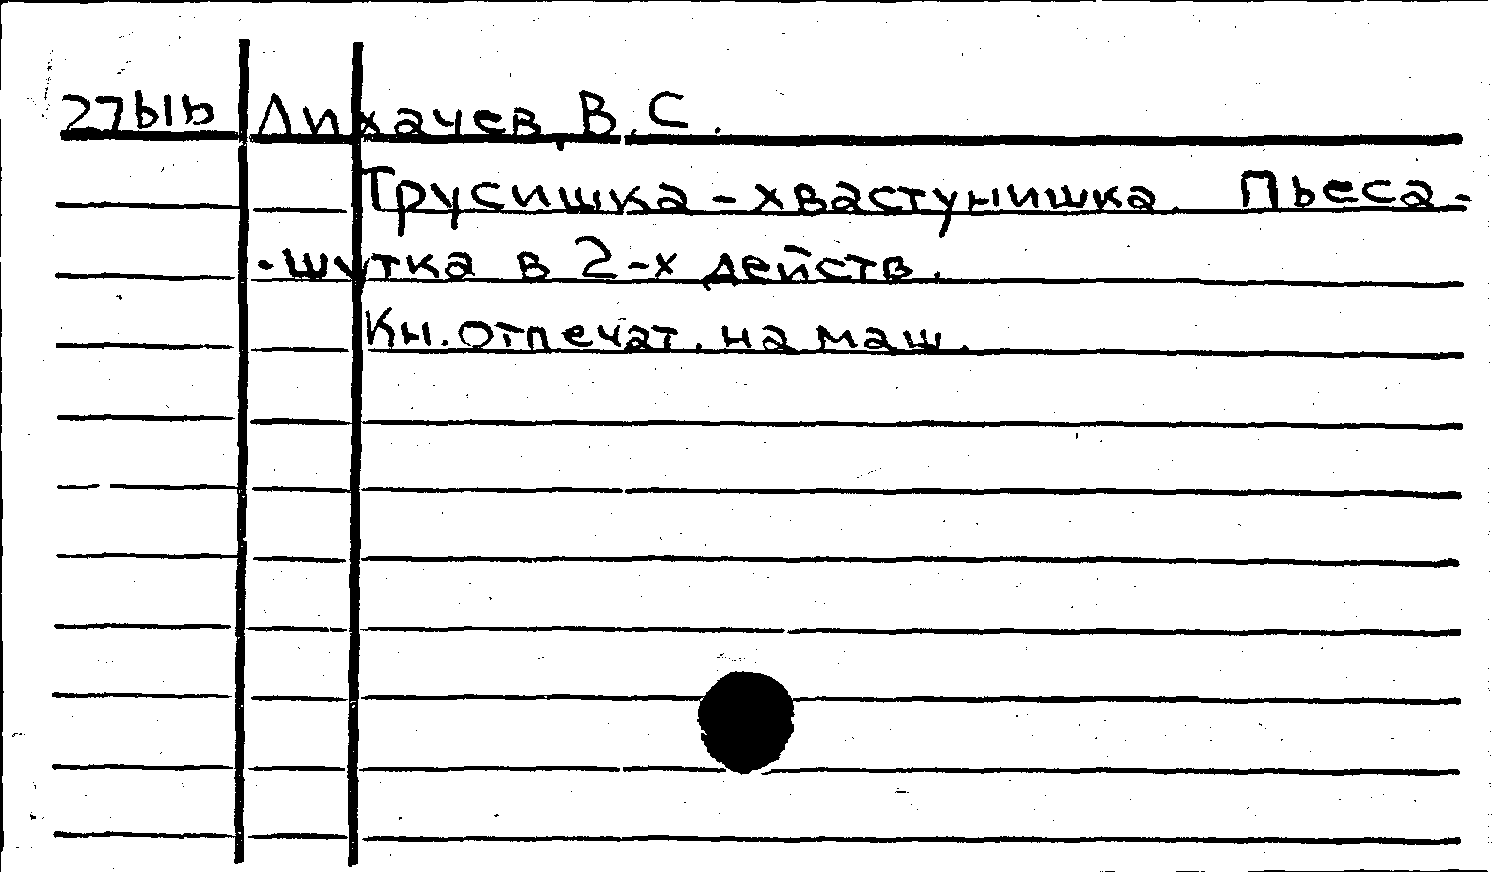 Лихачев, В.С.
Трусишка-хвастунишка. Пьеса-
-шутка в 2-х действ.
Кн. отпечат. на маш.